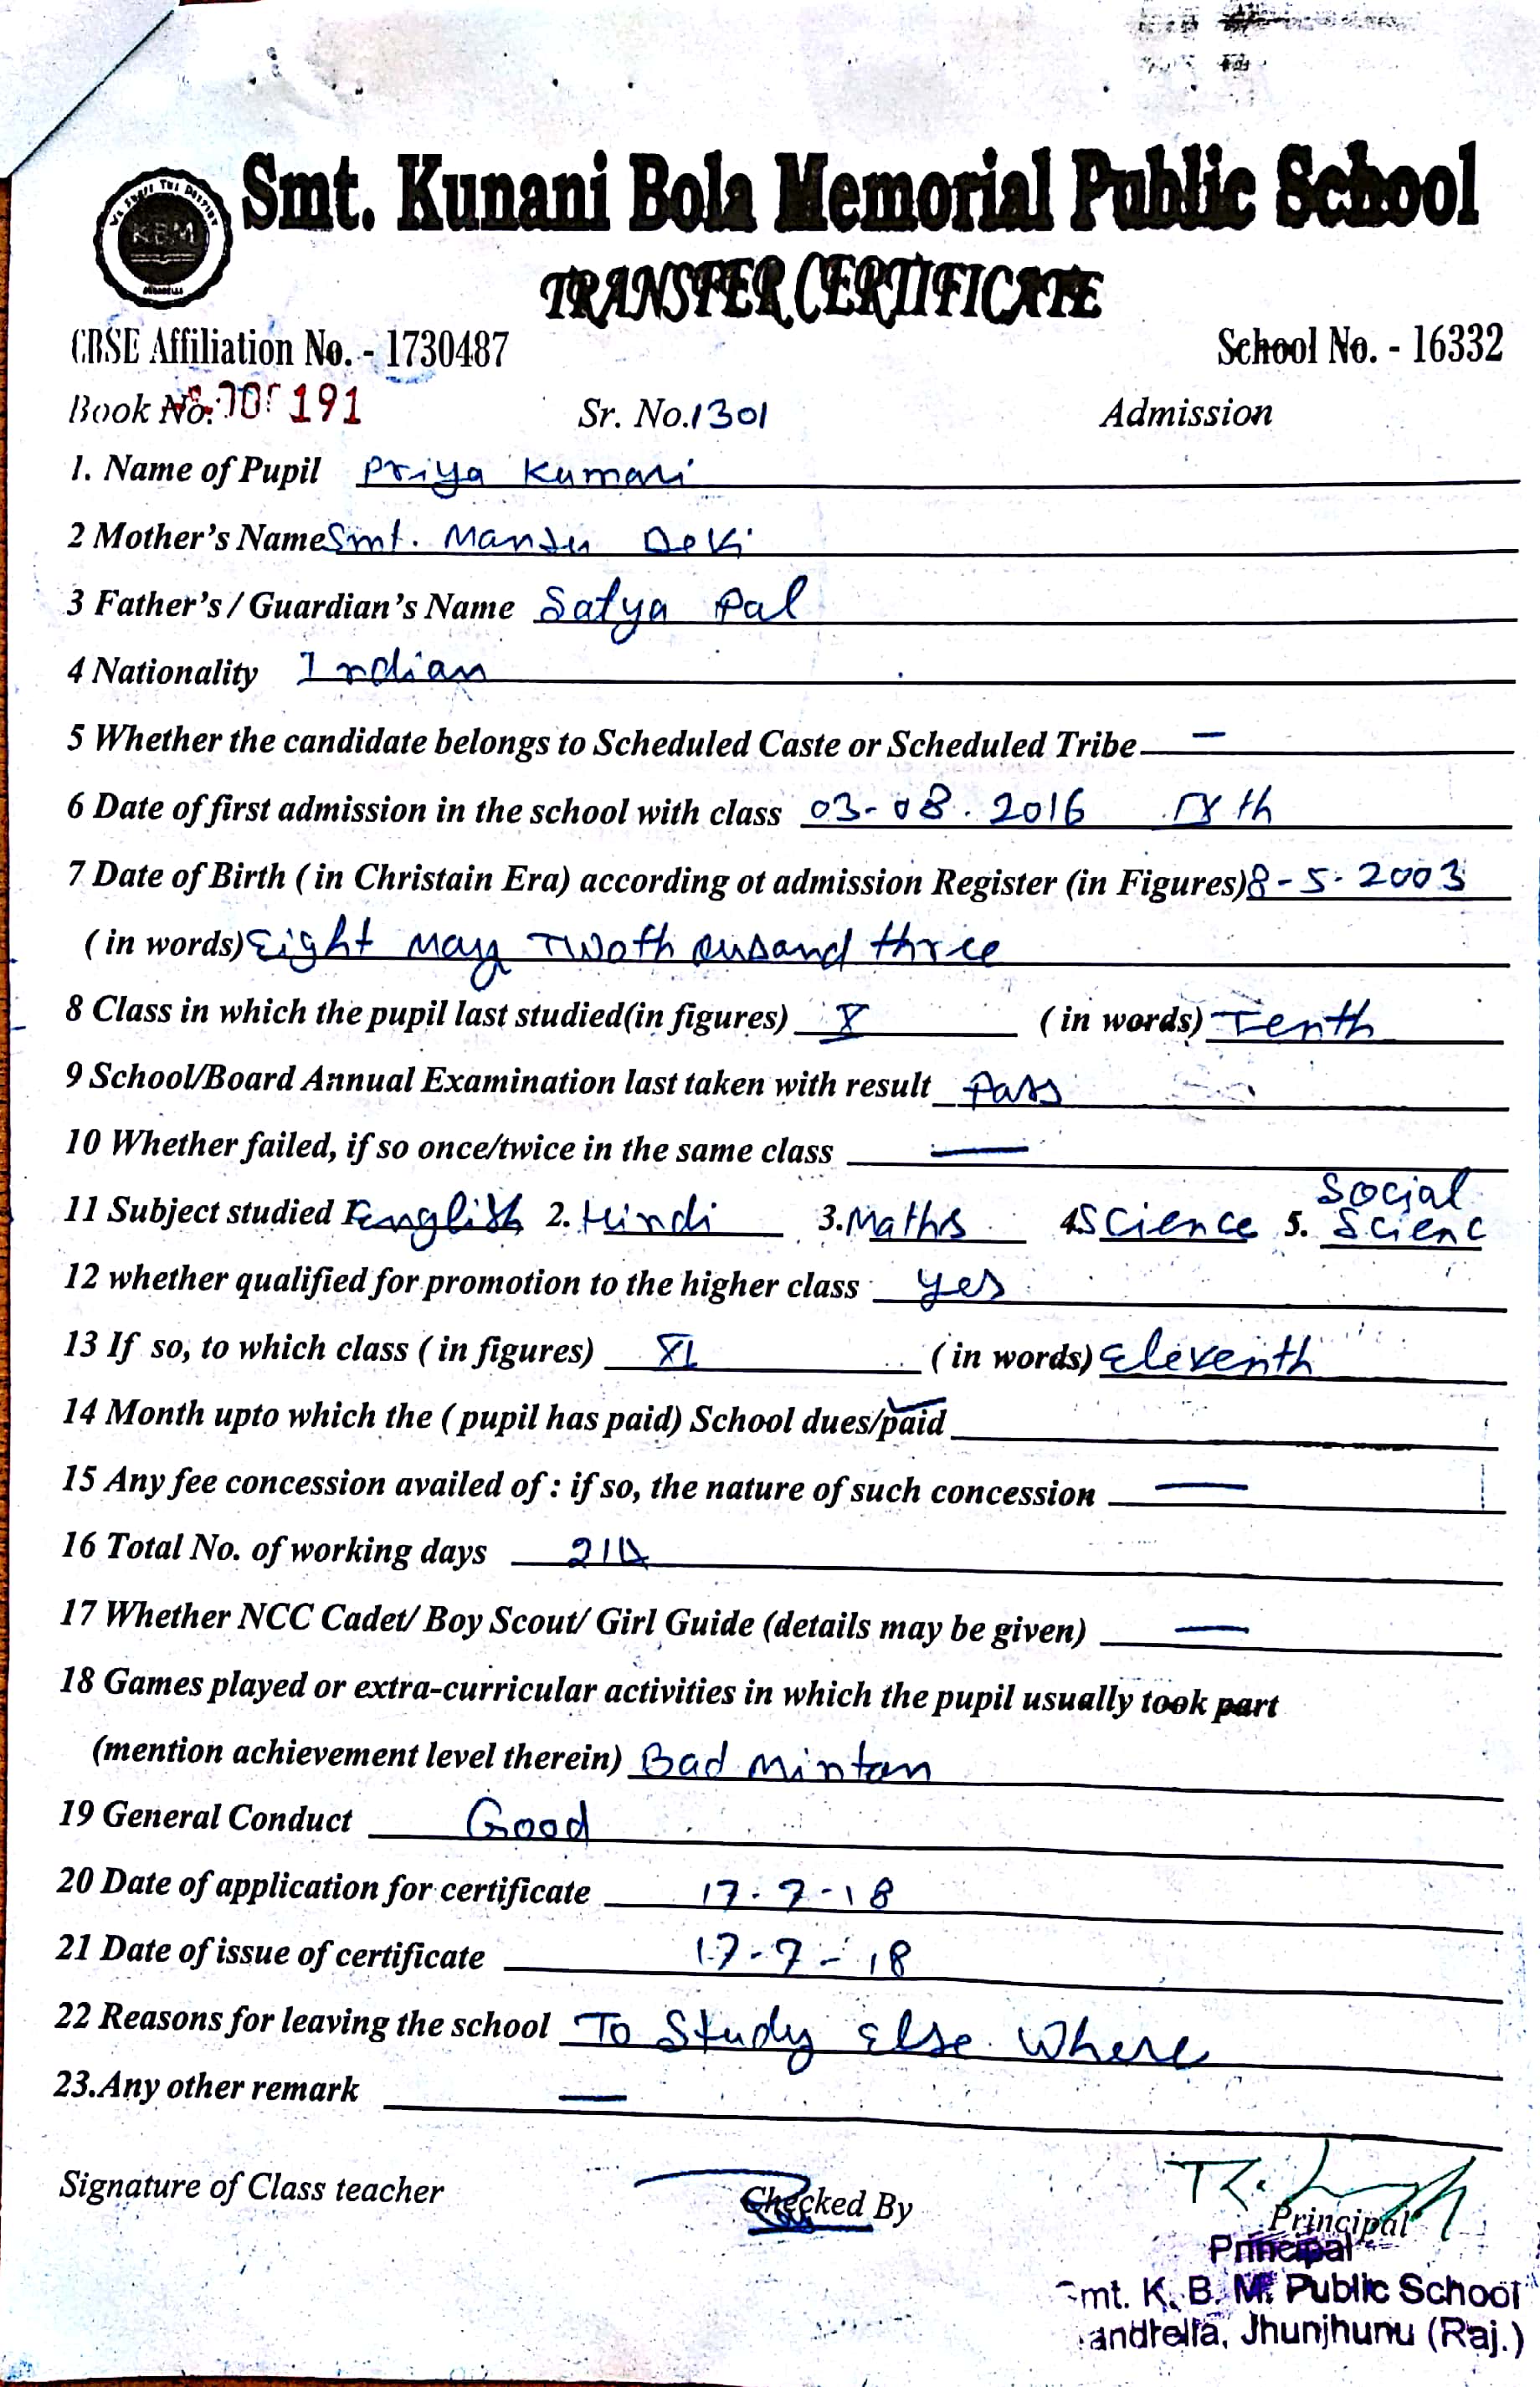 Smt. Kunani Bola Memorial Public School
KBM
TRANSFER CERTIFICATE
CBSE Affiliation No. - 1730487 School No. - 16332
Book No. 191 Sr. No. 1301 Admission
1. Name of Pupil Priya Kumari
2 Mother's Name Smt. Manju Devi
3 Father's / Guardian's Name Satya Pal
4 Nationality Indian
5 Whether the candidate belongs to Scheduled Caste or Scheduled Tribe —
6 Date of first admission in the school with class 03-08.2016 IX th
7 Date of Birth ( in Christain Era) according ot admission Register (in Figures) 8-5-2003
( in words) Eight May Twothousand three
8 Class in which the pupil last studied(in figures) X ( in words) Tenth
9 School/Board Annual Examination last taken with result Pass
10 Whether failed, if so once/twice in the same class —
11 Subject studied 1. English 2. Hindi 3. Maths 4. Science 5. Social Scienc
12 whether qualified for promotion to the higher class yes
13 If so, to which class ( in figures) XI ( in words) Eleventh
14 Month upto which the ( pupil has paid) School dues/paid
15 Any fee concession availed of : if so, the nature of such concession —
16 Total No. of working days 214
17 Whether NCC Cadet/ Boy Scout/ Girl Guide (details may be given) —
18 Games played or extra-curricular activities in which the pupil usually took part
(mention achievement level therein) Bad Minton
19 General Conduct Good
20 Date of application for certificate 17-7-18
21 Date of issue of certificate 17-7-18
22 Reasons for leaving the school To Study Else Where
23.Any other remark —
Signature of Class teacher Checked By Principal
Principal
Smt. K. B. M. Public School
Jhunjhunu (Raj.)